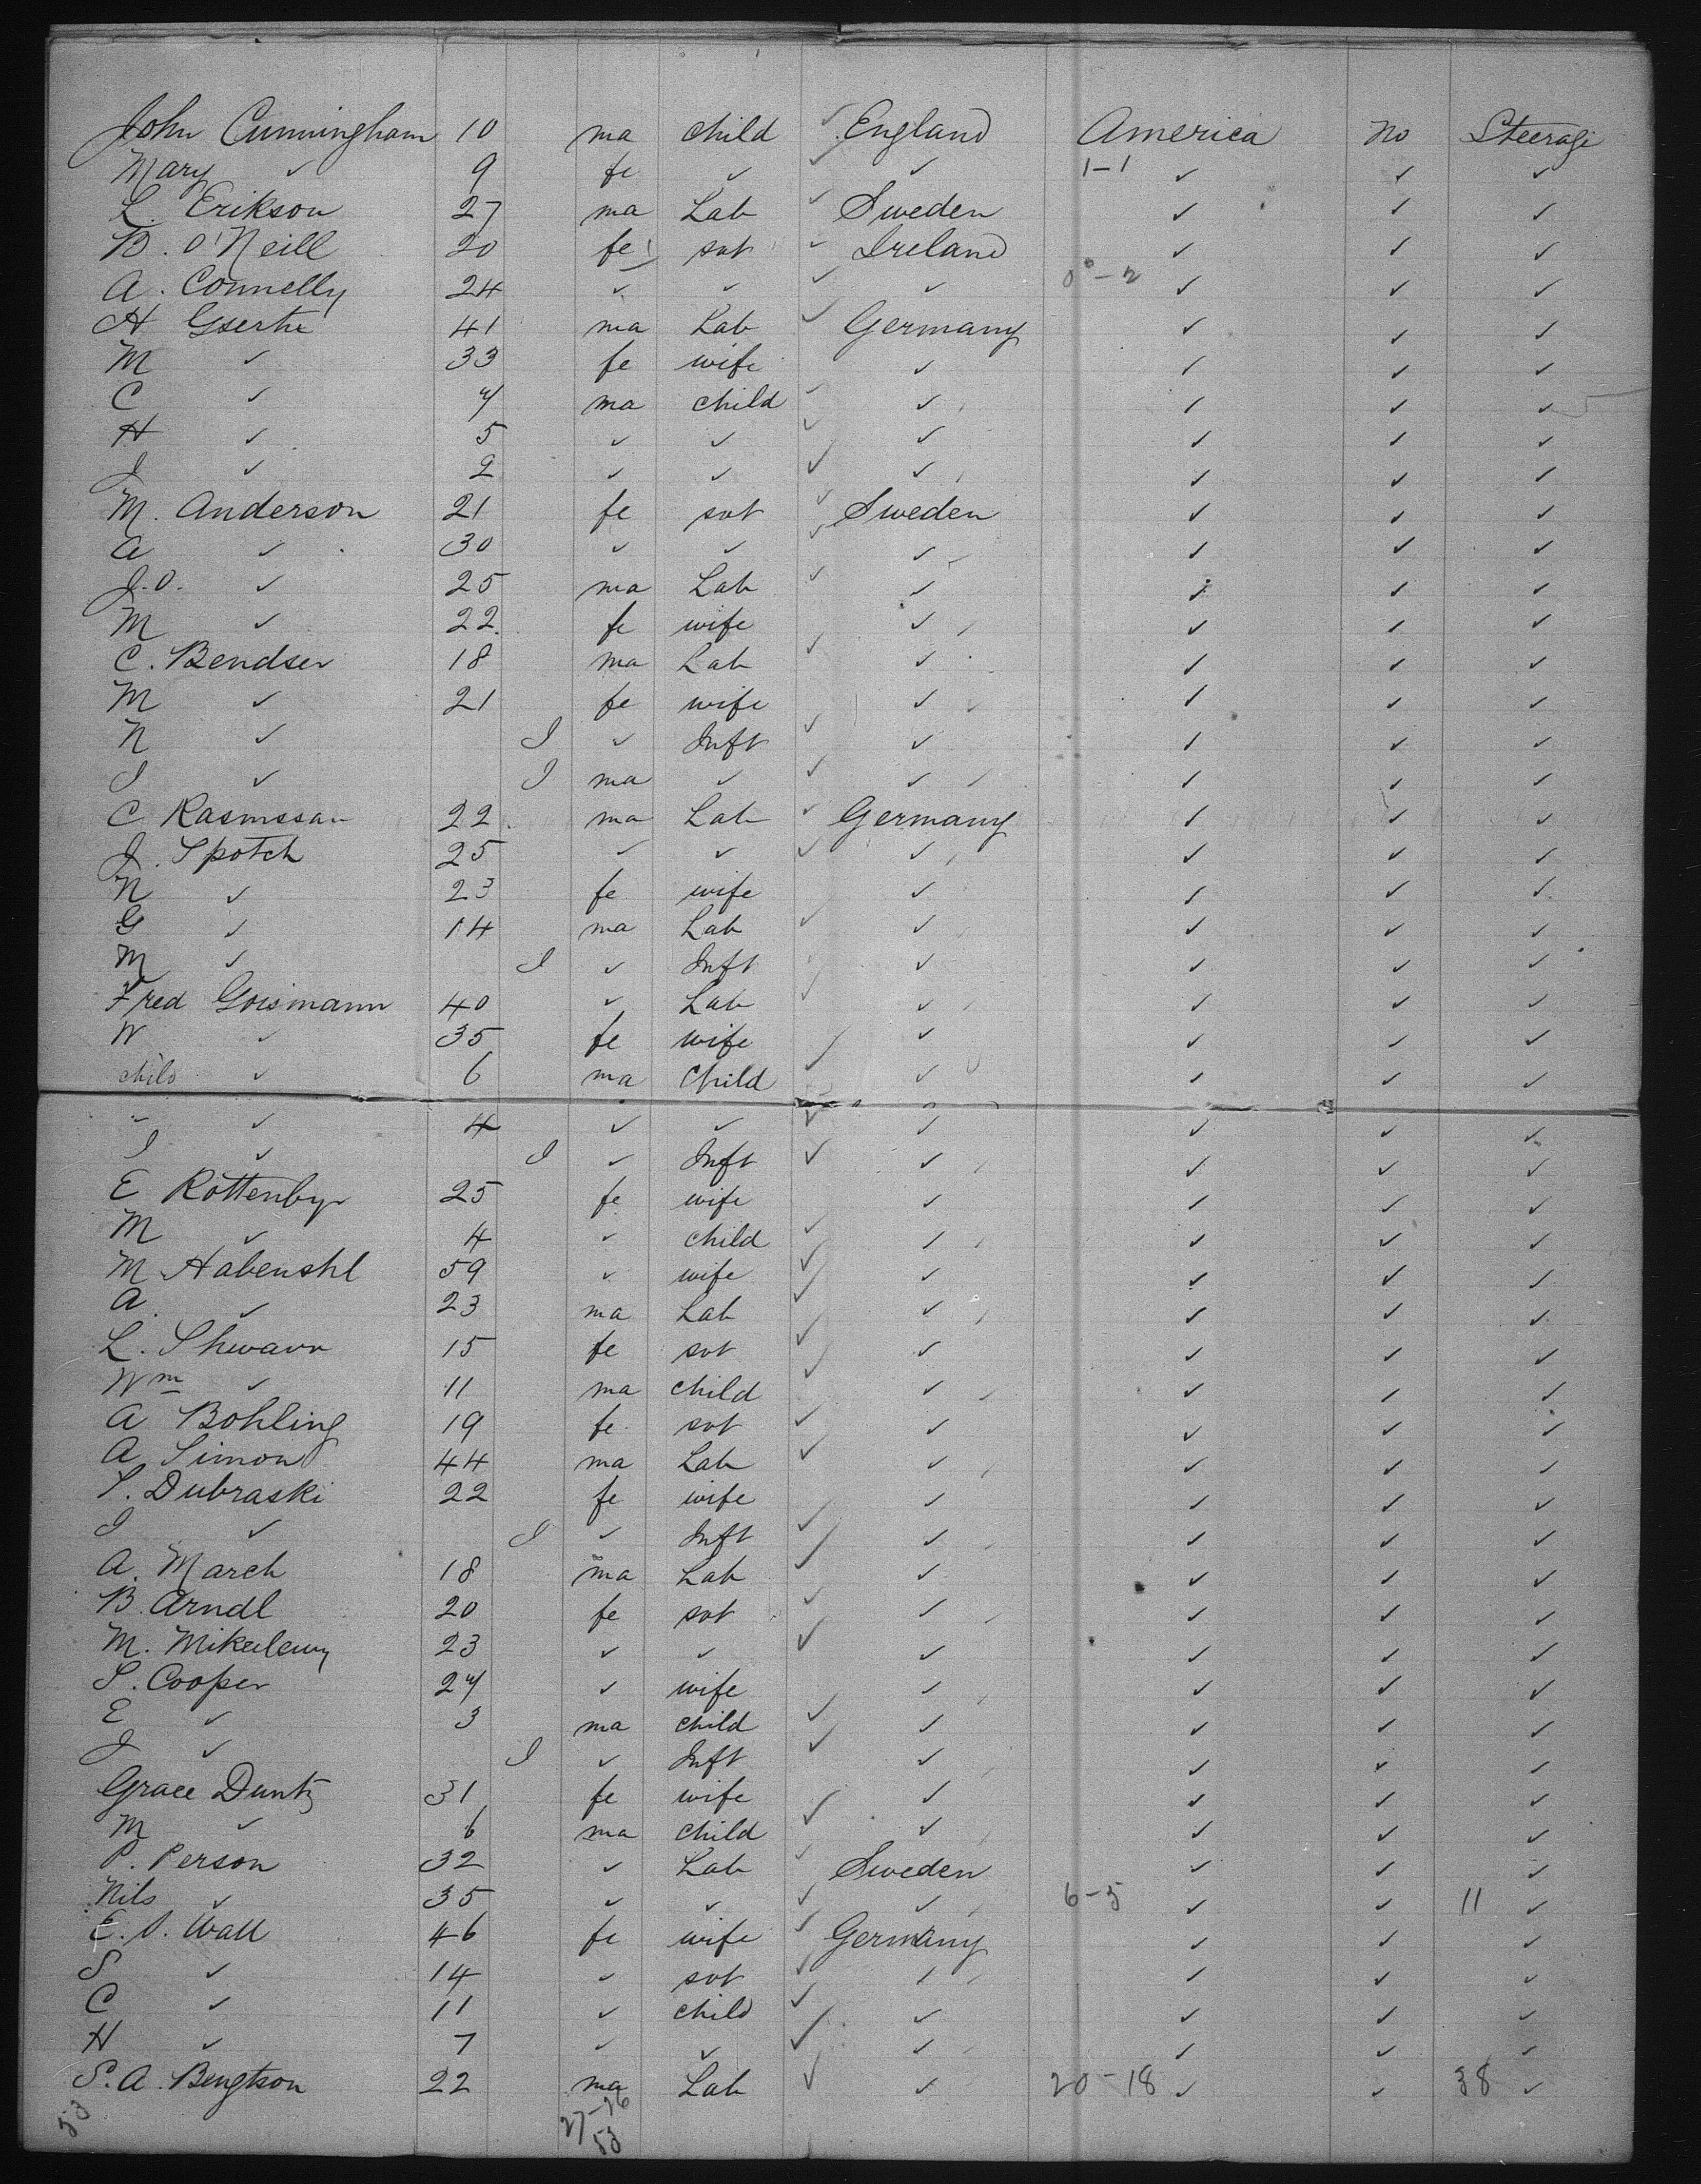 John Cunningham 10 ma child ✓ England America No Steerage
Mary ✓ 9 fe ✓ ✓ ✓ 1-1 ✓ ✓ ✓
L. Erikson 27 ma Lab ✓ Sweden ✓ ✓ ✓
B. O'Neill 20 fe svt ✓ Ireland ✓ ✓ ✓
A. Connelly 24 ✓ ✓ ✓ ✓ 0-2 ✓ ✓ ✓
H 41 ma Lab ✓ Germany ✓ ✓ ✓
M ✓ 33 fe wife ✓ ✓ ✓ ✓
C ✓ 7 ma child ✓ ✓ ✓ ✓ ✓
H ✓ 5 ✓ ✓ ✓ ✓ ✓ ✓ ✓
J ✓ 2 ✓ ✓ ✓ ✓ ✓ ✓ ✓
M. Anderson 21 fe svt ✓ Sweden ✓ ✓ ✓
A ✓ 30 ✓ ✓ ✓ ✓ ✓ ✓ ✓
J.O. ✓ 25 ma Lab ✓ ✓ ✓ ✓ ✓
M ✓ 22 fe wife ✓ ✓ ✓ ✓
C. Bendser 18 ma Lab ✓ ✓ ✓ ✓ ✓
M ✓ 21 fe wife ✓ ✓ ✓ ✓
N ✓ I ✓ Inft ✓ ✓ ✓ ✓ ✓
I ✓ I ma ✓ ✓ ✓ ✓ ✓ ✓
C Rasmssan 22 ma Lab ✓ Germany ✓ ✓ ✓
J. Spotch 25 ✓ ✓ ✓ ✓ ✓ ✓ ✓
N ✓ 23 fe wife ✓ ✓ ✓ ✓
G ✓ 14 ma Lab ✓ ✓ ✓ ✓ ✓
M ✓ I ✓ Inft ✓ ✓ ✓ ✓ ✓
Fred Goismann 40 ✓ Lab ✓ ✓ ✓ ✓ ✓
W ✓ 35 fe wife ✓ ✓ ✓ ✓ ✓
child ✓ 6 ma child ✓ ✓ ✓ ✓
✓ ✓ 4 ✓ ✓ ✓ ✓ ✓ ✓ ✓
I ✓ I ✓ Inft ✓ ✓ ✓ ✓ ✓
E Rottenbyr 25 fe wife ✓ ✓ ✓ ✓
M ✓ 4 ✓ child ✓ ✓ ✓ ✓ ✓
M Habenshl 59 ✓ wife ✓ ✓ ✓ ✓ ✓
A. ✓ 23 ma Lab ✓ ✓ ✓ ✓ ✓
L. Shwann 15 fe svt ✓ ✓ ✓ ✓ ✓
Wm ✓ 11 ma child ✓ ✓ ✓ ✓ ✓
A Bohling 19 fe svt ✓ ✓ ✓ ✓ ✓
A Simon 44 ma Lab ✓ ✓ ✓ ✓ ✓
S. Dubraski 22 fe wife ✓ ✓ ✓ ✓ ✓
I ✓ I ✓ Inft ✓ ✓ ✓ ✓ ✓
A. March 18 ma Lab ✓ ✓ ✓ ✓ ✓
B. Arndl 20 fe svt ✓ ✓ ✓ ✓ ✓
M. 23 ✓ ✓ ✓ ✓ ✓ ✓ ✓
S. Cooper 27 ✓ wife ✓ ✓ ✓ ✓ ✓
E ✓ 3 ma child ✓ ✓ ✓ ✓ ✓
J ✓ I ✓ Inft ✓ ✓ ✓ ✓ ✓
Grace Duntz 31 fe wife ✓ ✓ ✓ ✓ ✓
M ✓ 6 ma child ✓ ✓ ✓ ✓ ✓
P. Person 32 ✓ Lab ✓ Sweden ✓ ✓ ✓
Nils ✓ 35 ✓ ✓ ✓ ✓ 6-5 ✓ ✓ 11 ✓
E. O. Wall 46 fe wife ✓ Germany ✓ ✓ ✓
S ✓ 14 ✓ svt ✓ ✓ ✓ ✓ ✓
C ✓ 11 ✓ child ✓ ✓ ✓ ✓ ✓
H ✓ 7 ✓ ✓ ✓ ✓ ✓ ✓ ✓
S. A. Bengtson 22 ma Lab ✓ ✓ 20-18 ✓ ✓ 38 ✓
53 27-26
53